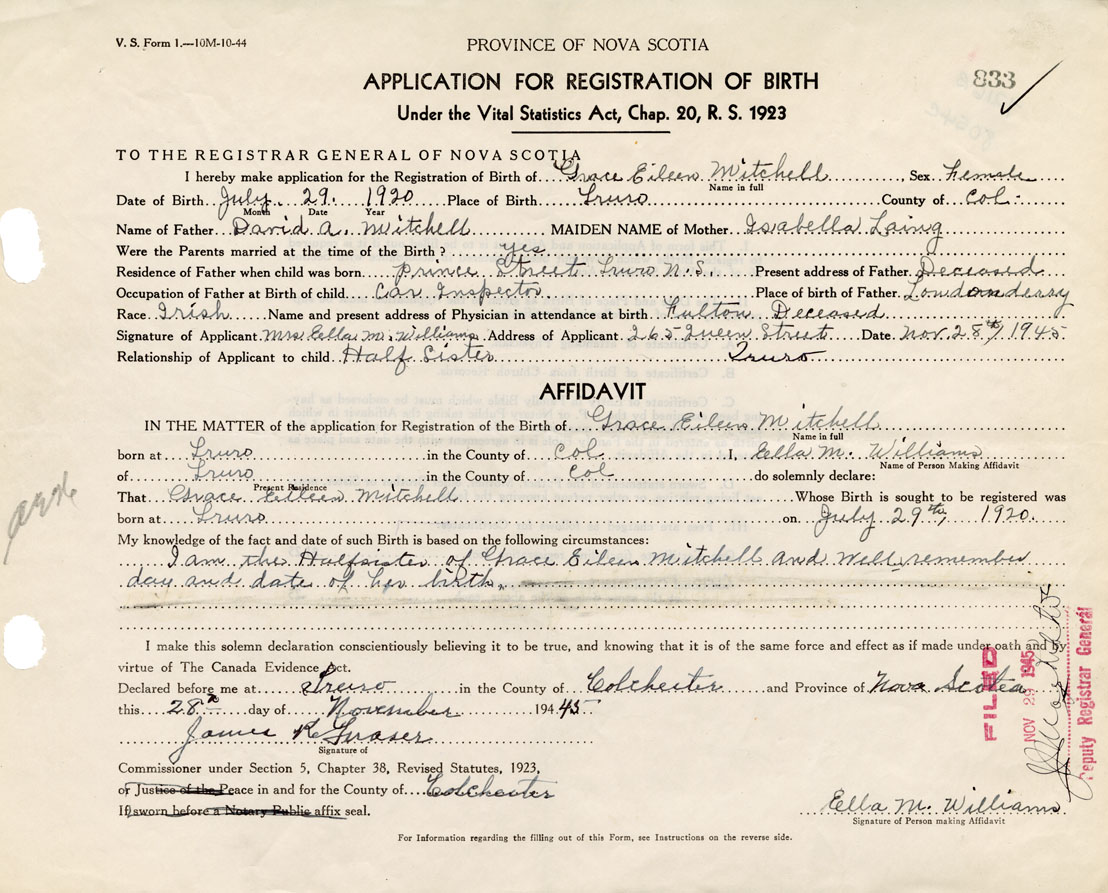 V. S. Form 1.—10M-10-44
PROVINCE OF NOVA SCOTIA
833
APPLICATION FOR REGISTRATION OF BIRTH
Under the Vital Statistics Act, Chap. 20, R. S. 1923
TO THE REGISTRAR GENERAL OF NOVA SCOTIA
I hereby make application for the Registration of Birth of Grace Eileen Mitchell, Sex Female
Name in full
Date of Birth July 29 1920 Place of Birth Truro County of Col.
Month Date Year
Name of Father David A. Mitchell MAIDEN NAME of Mother Isabella Laing
Were the Parents married at the time of the Birth? yes
Residence of Father when child was born Prince Street Truro N.S. Present address of Father Deceased
Occupation of Father at Birth of child Car Inspector Place of birth of Father Londonderry
Race Irish Name and present address of Physician in attendance at birth Fulton Deceased
Signature of Applicant Mrs Ella M. Williams Address of Applicant 265 Queen Street Date Nov. 28th/1945
Relationship of Applicant to child Half Sister Truro
AFFIDAVIT
IN THE MATTER of the application for Registration of the Birth of Grace Eileen Mitchell
Name in full
born at Truro in the County of Col. I, Ella M. Williams
Name of Person Making Affidavit
of Truro in the County of Col do solemnly declare:
Present Residence
That Grace Eileen Mitchell Whose Birth is sought to be registered was
born at Truro on July 29th, 1920.
My knowledge of the fact and date of such Birth is based on the following circumstances:
I am the Halfsister of Grace Eileen Mitchell and well remember
day and date of her birth.
I make this solemn declaration conscientiously believing it to be true, and knowing that it is of the same force and effect as if made under oath and by
virtue of The Canada Evidence Act.
Declared before me at Truro in the County of Colchester and Province of Nova Scotia
this 28 day of November 194 45
James K Fraser
Signature of
Commissioner under Section 5, Chapter 38, Revised Statutes, 1923,
or Justice of the Peace in and for the County of Colchester
If sworn before a Notary Public affix seal.
Ella M. Williams
Signature of Person making Affidavit
For Information regarding the filling out of this Form, see Instructions on the reverse side.
FILED
NOV 29 1945
Deputy Registrar General